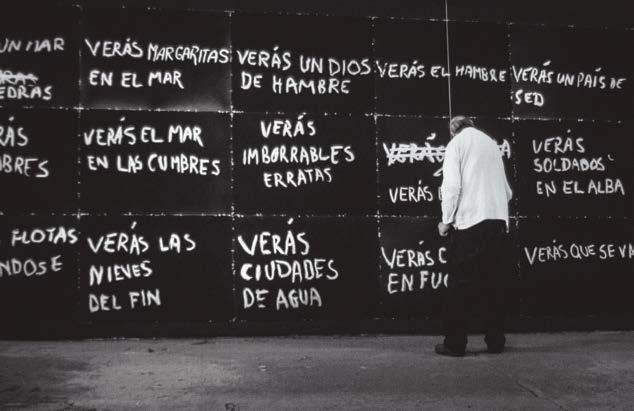 UN MAR
EDRAS
VERÁS MARGARITAS
EN EL MAR
VERÁS UN DIOS
DE HAMBRE
VERÁS EL HAMBRE
VERÁS UN PAÍS DE
SED
VERÁS EL MAR
EN LAS CUMBRES
VERÁS
IMBORRABLES
ERRATAS
VERÁS
VERÁS
VERÁS
SOLDADOS
EN EL ALBA
FLOTAS
NDOSE
VERÁS LAS
NIEVES
DEL FIN
VERÁS
CIUDADES
DE AGUA
VERÁS
EN FU
VERÁS QUE SE VA